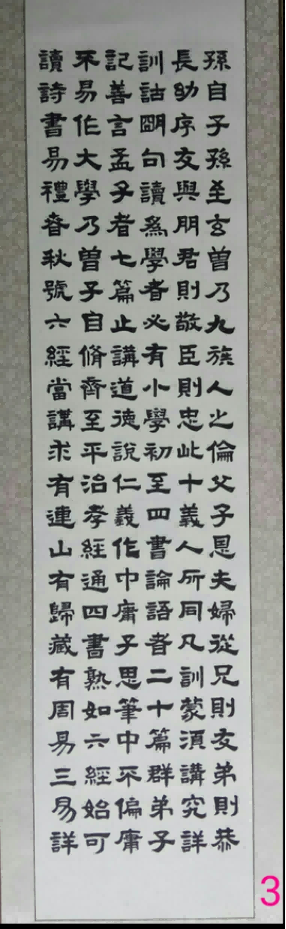 孫自子孫至玄曾乃九族人之倫父子恩夫婦從兄則友弟則恭
長幼序友與朋君則敬臣則忠此十義人所同凡訓蒙須講究詳
訓詁朙句讀爲學者必有小學初至四書論語者二十篇群弟子
記善言孟子者七篇止講道德說仁義作中庸子思筆中不偏庸
不易作大學乃曾子自脩齊至平治孝經通四書熟如六經始可
讀詩書易禮春秋號六經當講求有連山有歸藏有周易三易詳
3